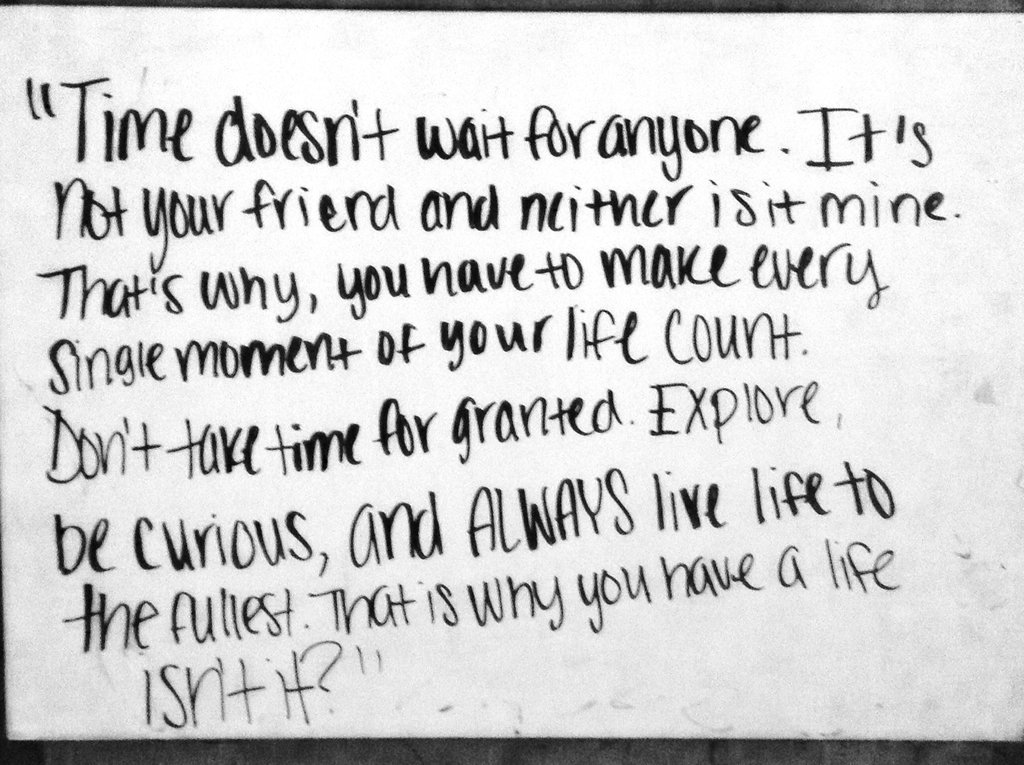 "Time doesn't wait for anyone. It's
not your friend and neither is it mine.
That's why, you have to make every
single moment of your life count.
Don't take time for granted. Explore,
be curious, and ALWAYS live life to
the fullest. That is why you have a life
isn't it?"